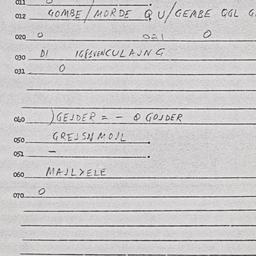 011 0
012 GOMBE/MORDE QU/GEABE QGL G
020 0 021 0
030 DI IGESVENCULAJNG
031 0
040 )GEJDER = - 0 GOJDER
050 GREJSN MOJL
051 -
060 MAJLYELE
070 0